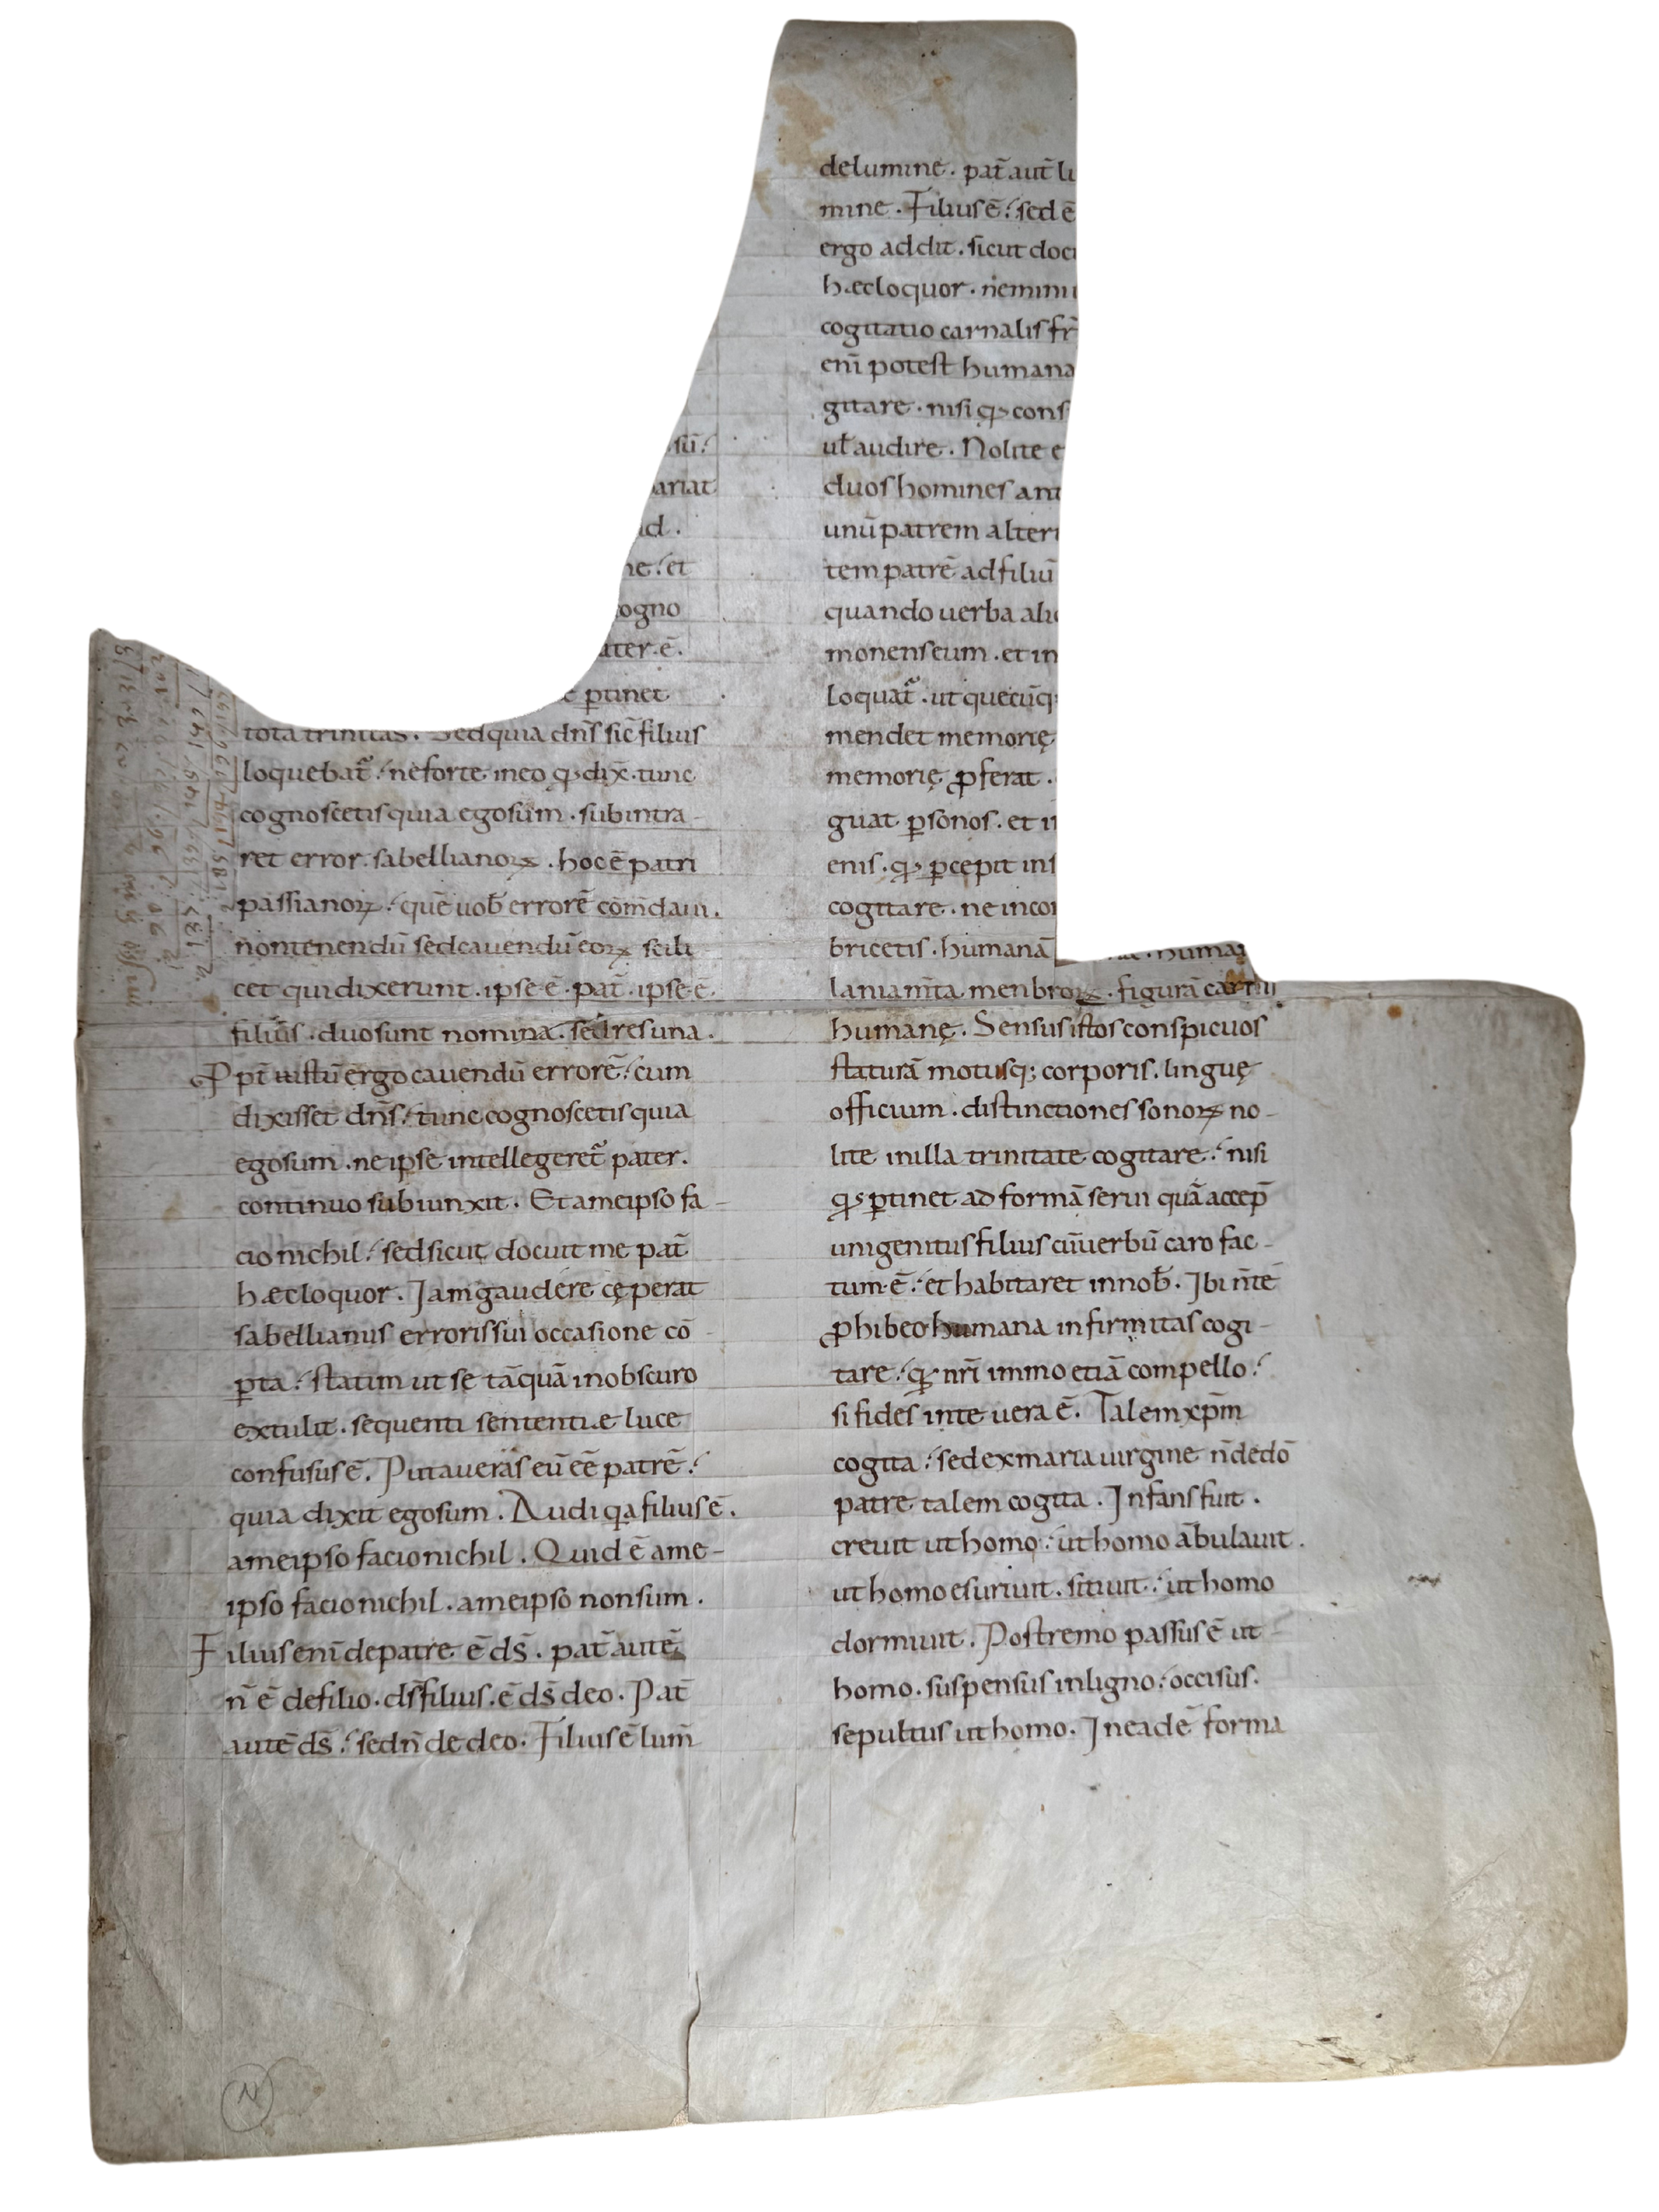 sū:
ariat
id.
ne: et
ogno
ater. ē.
ptinet
tota trinitas. Sed quia dn̄s sic̄ filius
loquebat᷑: ne forte in eo qđ dix̄. tunc
cognoscetis quia ego sum. subintra-
ret error. sabellianoꝝ. hoc ē patri
passianoꝝ: quē uob̄ errorē cōm̄daui.
non tenendū sed cauendū eoꝝ scili
cet qui dixerunt. ipse ē. pat̄. ipse ē.
filius. duo sunt nomina. sed res una.
Ppt̄ istū ergo cauendū errorē: cum
dixisset dn̄s: tunc cognoscetis quia
ego sum. ne ipse intellegeret᷑ pater.
continuo subiunxit. Et a me ipso fa-
cio nichil: sed sicut docuit me pat̄
hæc loquor. Iam gaudere cęperat
sabellianus erroris sui occasione cō-
ꝑta: statim ut se tāquā in obscuro
extulit. sequenti sententiæ luce
confusus ē. Putaueras eū eē patrē:
quia dixit ego sum. Audi qa filius ē.
a me ipso facio nichil. Quid ē a me-
ipso facio nichil. a me ipso non sum.
Filius eni̅ de patre ē ds̄. pat̄ autē
n̄ ē de filio. ds̄ filius. ē ds̄ deo. Pat̄
autē ds̄: sed n̄ de deo. Filius ē lum̄
de lumine. pat̄ aut̄ lu
mine. Filius ē: sed ē
ergo addit. sicut doc
hæc loquor. ne mini
cogitatio carnalis fr̄
eni̅ potest humana
gitare. nisi qđ cons
ul̄ audire. Nolite e
duos homines ant
unū patrem alter
tem patrē ad filiū
quando uerba ali
monens eum. et in
loquat᷑. ut quecūq
mendet memorię
memorię ꝓferat.
guat ꝑ sonos. et i
enis. qđ ꝑcepit ins
cogitare. ne in cor
bricetis. humanā humā
laniam̄ta menbroꝝ. figurā carnis
humanę. Sensus istos conspicuos
staturā motusq; corporis. linguę
officium. distinctiones sonoꝝ no-
lite in illa trinitate cogitare: nisi
qđ ꝑtinet ad formā serui quā accep̄
unigenitus filius cū uerbū caro fac-
tum ē: et habitaret in nob̄. Ibi n̄ te
ꝓhibeo humana infirmitas cogi-
tare: qđ nr̄i immo etiā compello:
si fides in te uera ē. Talem xpm̄
cogita: sed ex maria uirgine n̄ de dō
patre talem cogita. Infans fuit.
creuit ut homo: ut homo ābulauit.
ut homo esuriuit. sitiuit: ut homo
dormiuit. Postremo passus ē ut
homo. suspensus in ligno: occisus.
sepultus ut homo. In eadē forma
N